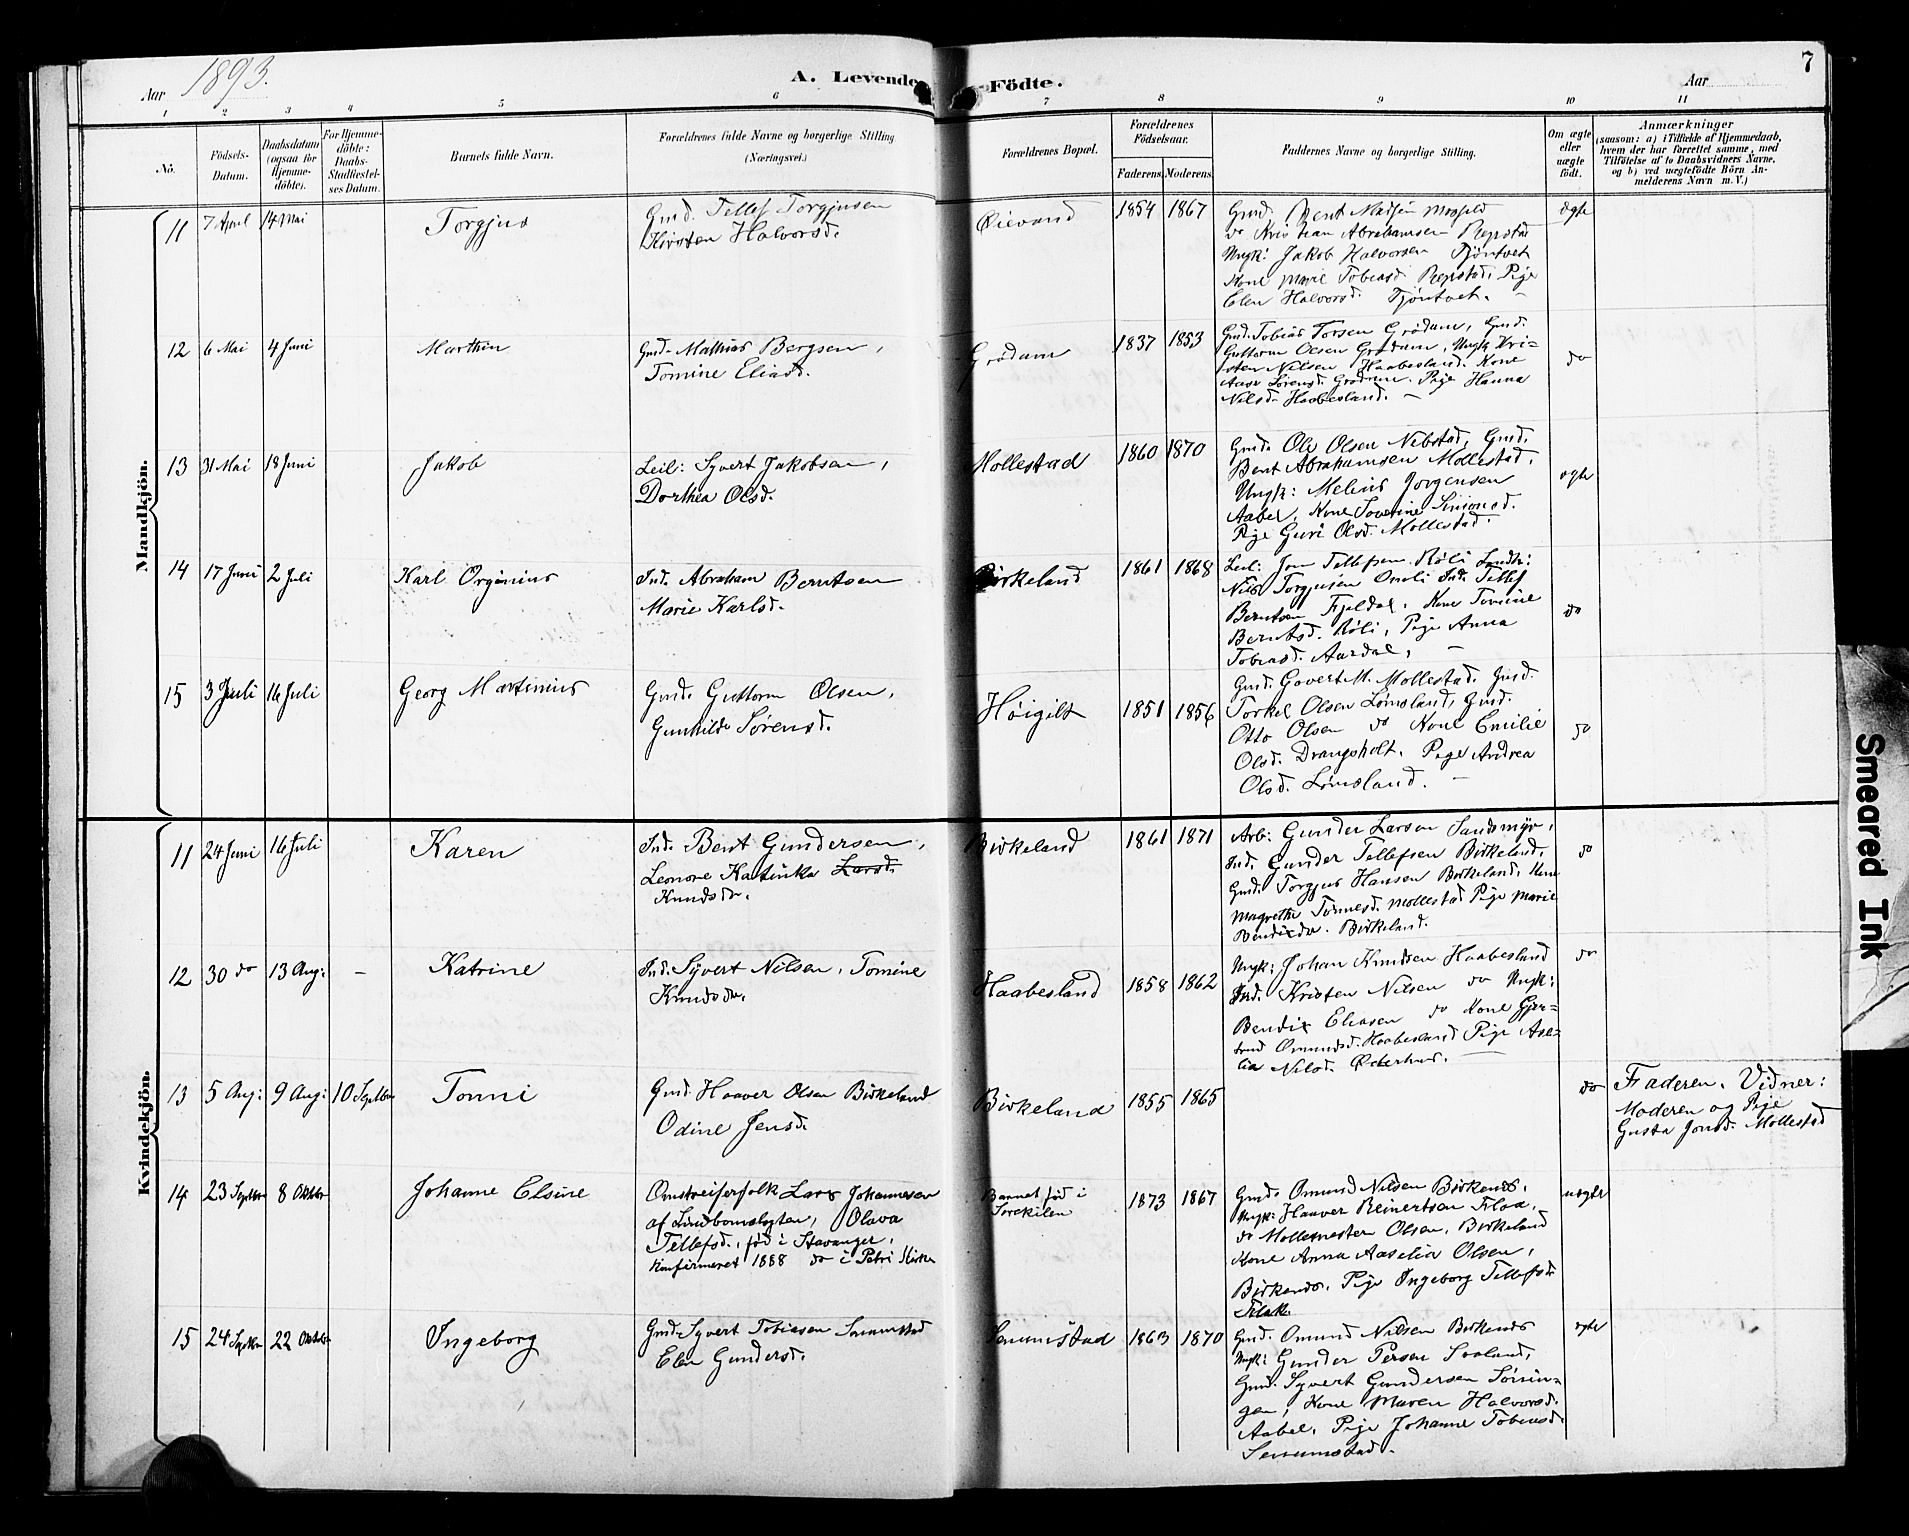 Aar 1893.
A. Levende Födte.
Aar
7
1 2 3 4 5 6 7 8 9 10 11
No.
Födsels-Datum.
Daabsdatum (ogsaa for Hjemme-döbte).
For Hjemme-döbte: Daabs-Stadfæstel-ses Datum.
Barnets fulde Navn.
Forældrenes fulde Navne og borgerlige Stilling (Næringsvei.)
Forældrenes Bopæl.
Forældrenes Födselsaar.
Faderens. Moderens.
Faddernes Navne og borgerlige Stilling.
Om ægte eller uægte födt.
Anmærkninger
(saasom: a) i Tilfælde af Hjemmedaab,
hvem der har forrettet samme, med
Tilföielse af to Daabsvidners Navne,
og b) ved uægtefödte Börn An-
melderens Navn m. V.)
Mandkjön.
11 7 April 14 Mai
Torgjus
Gmd. Tellef Torgjusen
Kirsten Halvorsd.
Øievand
1854 1867
Gmd. Bent Madsen
do Kristian Abrahamsen Repstad
Ungk: Jakob Halvorsen Tjöntvet
Kone Marie Tobiasd Repstad, Pige
Elen Halvorsd. Tjöntvet. –
ægte
12 6 Mai 4 Juni
Marthin
Gmd. Mathias Bergsen,
Tomine Eliasd.
Grødum
1837 1853
Gmd. Tobias Torsen Grødum, Gmd.
Guttorm Olsen Grødum, Ungk Kri-
sten Nilsen Haabesland. Kone
Aase Sørensd. Grødum. Pige Hanna
Nilsd. Haabesland. –
do
13 31 Mai 18 Juni
Jakob
Leil: Syvert Jakobsen,
Dorthea Olsd.
Mollestad
1860 1870
Gmd. Ole Olsen Nebstad, Gmd.
Bent Abrahamsen Mollestad.
Ungk: Melius Jorgensen
Aabel, Kone Severine Simonsd.
Pige Guri Olsd. Mollestad.
ægte
14 17 Juni 2 Juli
Karl Orginius
Ind. Abraham Berntsen
Marie Karlsd.
Birkeland
1861 1868
Leil: Jon Tellefsen Røli
Nils Torgjusen Omli Ind. Tellef
Berntsen Fjeldal. Kone Tomine
Berntsd. Røli, Pige Anna
Tobiasd. Aardal, –
do
15 3 Juli 16 Juli
Georg Martinius
Gmd. Guttorm Olsen,
Gunhilde Sørensd.
Høigilt
1851 1856
Gmd. Govert M. Mollestad. Gmd.
Torkel Olsen Lømsland, Gmd.
Otto Olsen do Kone Emilie
Olsd. Drangsholt. Pige Andrea
Olsd. Lømsland. –
do
Kvindekjön.
11 24 Juni 16 Juli
Karen
Ind. Bent Gundersen,
Leonore Katinka Larsd.
Knudsdr.
Birkeland
1861 1871
Arb: Gunder Larsen Sandsmyr,
Ind. Gunder Tellefsen Birkeland,
Gmd. Torgjus Hansen Birkeland. Kone
Magrethe Tønnesd. Mollestad Pige Marie
Bendixdr. Birkeland.
do
12 30 do 13 Aug: –
Katrine
Ind. Syvert Nilsen, Tomine
Knudsdr.
Haabesland
1858 1862
Ungk: Johan Knudsen Haabesland
Ind. Kristen Nilsen do Ungk:
Bendix Eliasen do Kone Gjer-
trud Omundsd. Haabesland Pige Ase-
lia Nilsd. Østerhus. –
do
13 5 Aug: 9 Aug: 10 Septbr
Tonni
Gmd. Haaver Olsen Birkeland
Odine Jensd.
Birkeland
1855 1865
do
Faderen. Vidner:
Moderen og Pige
Gusta Jonsd. Mollestad
14 23 Septbr 8 Oktbr
Johanne Elsine
Omstreiferfolk Lars Johannesen
af Lindbomslegten, Olava
Tellefsd., fød i Stavanger,
Konfirmeret 1888 do i Petri Kirke
Barnet fød i
1873 1867
Gmd. Omund Nilsen Birkenes,
Ungk: Haaver Reinertsen Flaa,
do Mollemester Olsen, Birkeland
Kone Anna Aaselia Olsen,
Birkenes. Pige Ingeborg Tellefsd
Flak.
uægte
15 24 Septbr 22 Oktbr
Ingeborg
Gmd. Syvert Tobiasen Senumstad
Elen Gundersd.
Senumstad
1863 1870
Gmd. Omund Nilsen Birkenes
Ungk: Gunder Persen
Gmd. Syvert Gundersen Sønin-
gen, Kone Maren Halvorsd.
Aabel, Pige Johanne Tobiasd.
Senumstad.
ægte
Smeared Ink